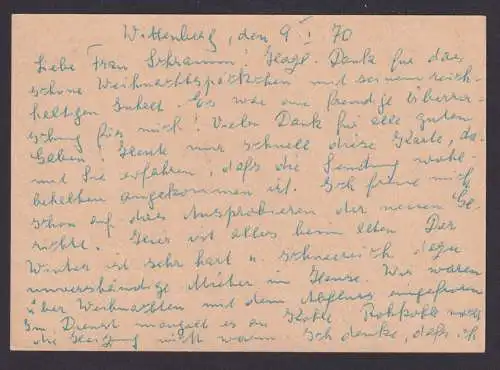 Wittenberg, den 9 I 70
Liebe Frau Schramm! Herzl. Dank für das
schöne Weihnachtspäckchen mit seinem reich-
haltigen Inhalt. Es war eine freudige Überra-
schung für mich! Vielen Dank für alle guten
Gaben! Heute nur schnell diese Karte, da-
mit Sie erfahren, daß die Sendung wohl-
behalten angekommen ist. Ich freue mich
schon auf das Ausprobieren der neuen Ge-
richte. Hier ist alles beim alten Der
Winter ist sehr hart u. schneereich dazu
unverständige Mieter im Hause. Wir waren
über Weihnachten mit dem Abfluss eingefroren
Im Dienst mangelt es an Kohle
die Heizung nicht warm Ich denke, daß ich